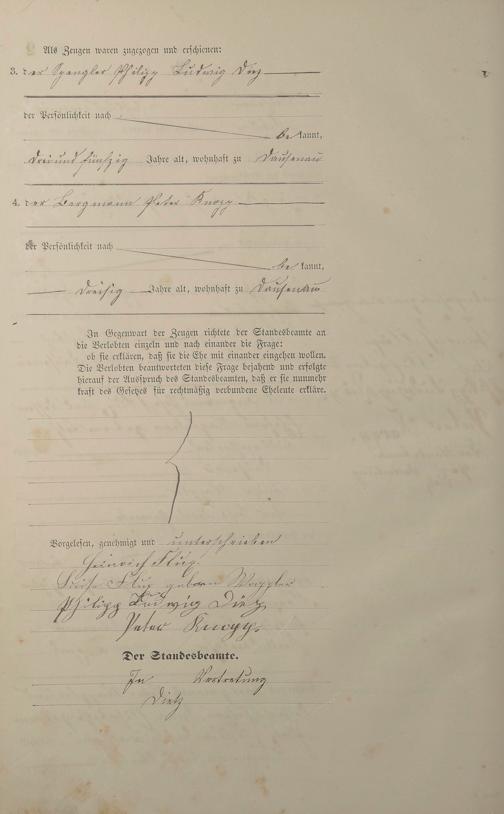 Als Zeugen waren zugezogen und erschienen:
3. der Spengler Philipp Ludwig Diez
der Persönlichkeit nach
be kannt,
dreiundfünfzig Jahre alt, wohnhaft zu Dausenau
4. der Bergmann Peter Knopp
der Persönlichkeit nach
be kannt,
dreißig Jahre alt, wohnhaft zu Dausenau
In Gegenwart der Zeugen richtete der Standesbeamte an
die Verlobten einzeln und nach einander die Frage:
ob sie erklären, daß sie die Ehe mit einander eingehen wollen.
Die Verlobten beantworteten diese Frage bejahend und erfolgte
hierauf der Ausspruch des Standesbeamten, daß er sie nunmehr
kraft des Gesetzes für rechtmäßig verbundene Eheleute erkläre.
Vorgelesen, genehmigt und unterschrieben
Heinrich Flug.
Luise Flug geborn
Philipp Ludwig Diez
Peter Knopp.
Der Standesbeamte.
In Vertretung
Dietz